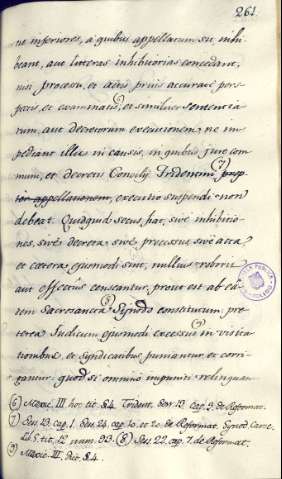 261
ne inferiores, a quibus appellatum sit, inhi-
beant, aut litteras inhibitorias concedant,
nisi processu, et actis prius accurate pers-
pectis, et examinatis (6), et similiter sententia-
rum, aut decretorum executionem ne im-
pediant illis in causis, in quibus jure com-
muni, et decretis Concilij Tridentini (7) prop-
ter appellationem, executio suspendi non
debeat. Quidquid secus fiat, sive inhibitio-
nes, sive decreta, sive processus, sive acta,
et cætera ejusmodi sint, nullius roboris
aut effectus censeantur, prout est ab ea-
dem Sacrosancta (8) Synodo constitutum, pre-
terea Iudicum ejusmodi excessus (9) in visita-
tionibus, et Syndicatibus puniantur, et corri-
gantur. quod si omnino impuniti relinquan-
(6) Mexic. III hoc tit. §.4. Trident. Sess. 13. cap. 3. de Reformat.
(7) Sess. 13. cap. 1. Sess. 24. cap. 10. et 20. de Reformat. Synod.
tit. 12. num. 93. (8) Sess. 22. cap. 7. de Reformat.
(9) Mexic. III. dict. §.4.